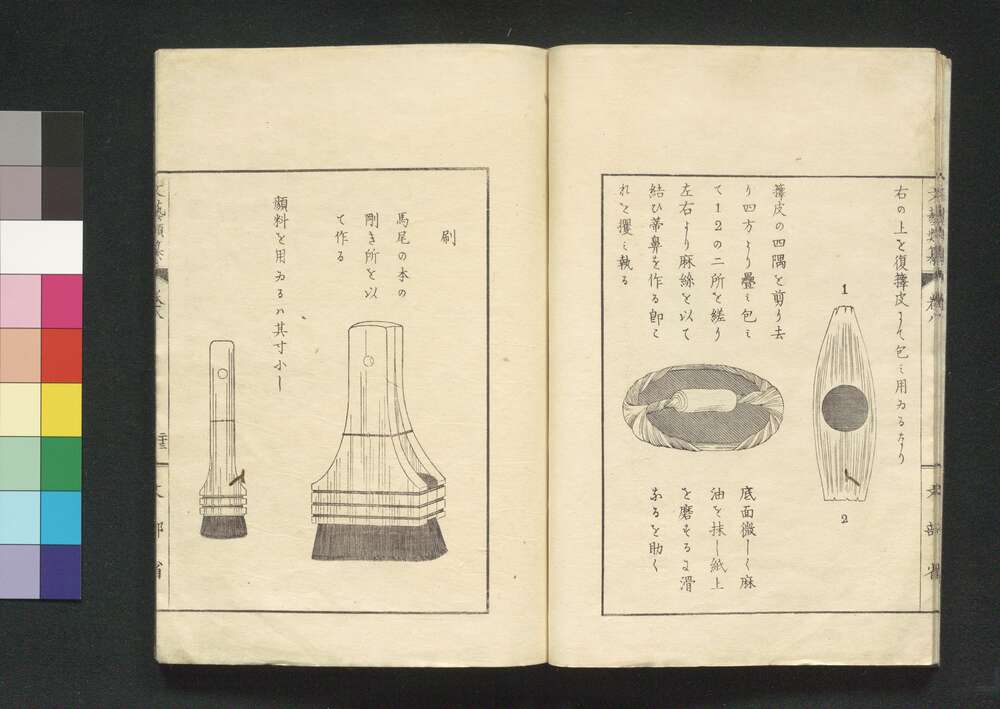 右の上を復籜皮にて包ミ用ゐるなり
1
2
籜皮の四隅を剪り去
り四方より疊ミ包ミ
て12の二所を縒り
左右より麻絲を以て
結ひ蒂鼻を作る即こ
れを攫ミ執る
底面微しく麻
油を抹し紙上
を磨するに滑
なるを助く
文部省
刷
馬尾の本の
剛き所を以
て作る
顔料を用ゐるハ其寸小し
文藝類纂
卷八
文部省